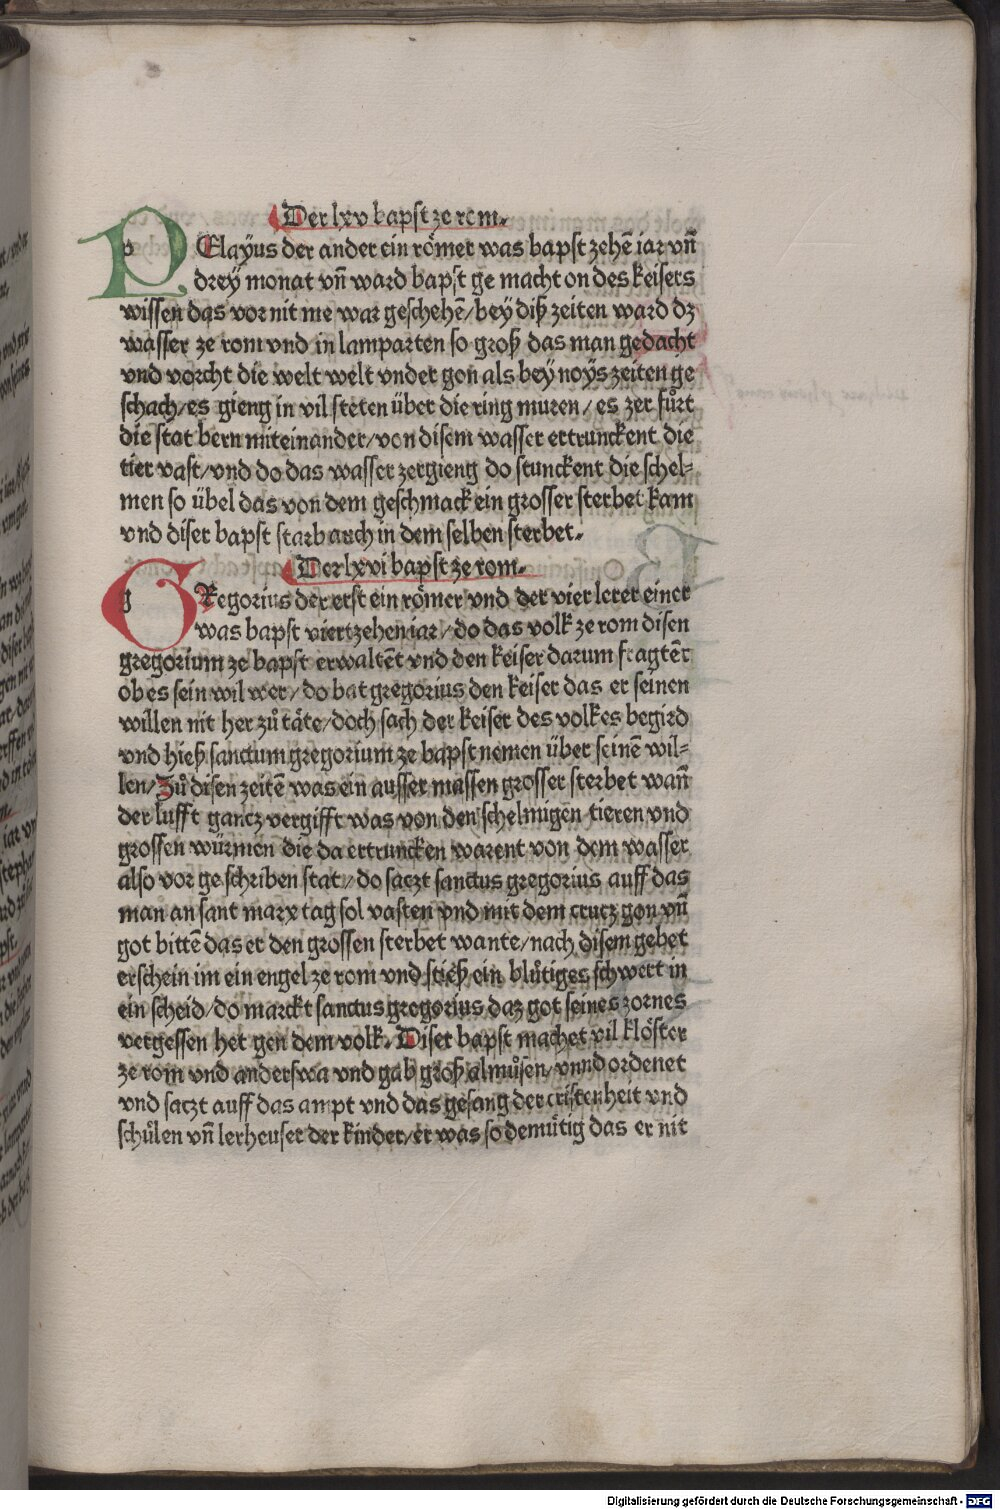 Der lxv bapst ze rom.
PElaÿus der ander ein römer was bapst zehē iar vn̄
dreÿ monat vn̄ ward bapst ge macht on des keisers
wissen das vor nit me war geschehē/ beÿ diß zeiten ward dz
wasser ze rom vnd in lamparten so groß das man gedacht
vnd vorcht die welt welt vnder gon als beÿ noÿs zeiten ge
schach/ es gieng in vil steten über die ring muren/ es zer fůrt
die stat bern miteinander/ von disem wasser ertrunckent die
tier vast/ vnd do das wasser zergieng do stunckent die schel⸗
men so übel das von dem geschmack ein grosser sterbet kam
vnd diser bapst starb auch in dem selben sterbet.
Der lxvi bapst ze rom.
GRegorius der erst ein römer vnd der vier lerer einer
was bapst viertzehen iar/ do das volk ze rom disen
gregorium ze bapst erwaltēt vnd den keiser darum fragtēt
ob es sein wil wer/ do bat gregorius den keiser das er seinen
willen nit her zů täte/ doch sach der keiser des volkes begird
vnd hieß sanctum gregorium ze bapst nemen über seinē wil⸗
len/ Zů disen zeitē was ein ausser massen grosser sterbet wan̄
der lufft gancz vergifft was von den schelmigen tieren vnd
grossen würmen die da ertruncken warent von dem wasser
also vor ge schriben stat/ do saczt sanctus gregorius auff das
man an sant marx tag sol vasten vnd mit dem crucz gon vn̄
got bittē das er den grossen sterbet wante/ nach disem gebet
erschein im ein engel ze rom vnd stieß ein blůtiges schwert in
ein scheid/ do marckt sanctus gregorius daz got seines zornes
vergessen het gen dem volk. Diser bapst machet vil klöster
ze rom vnd anderswa vnd gab groß almůsen/ vnnd ordenet
vnd saczt auff das ampt vnd das gesang der cristenheit vnd
schůlen vn̄ lerheuser der kinder/ er was so demütig das er nit
Digitalisierung gefördert durch die Deutsche Forschungsgemeinschaft - DFG